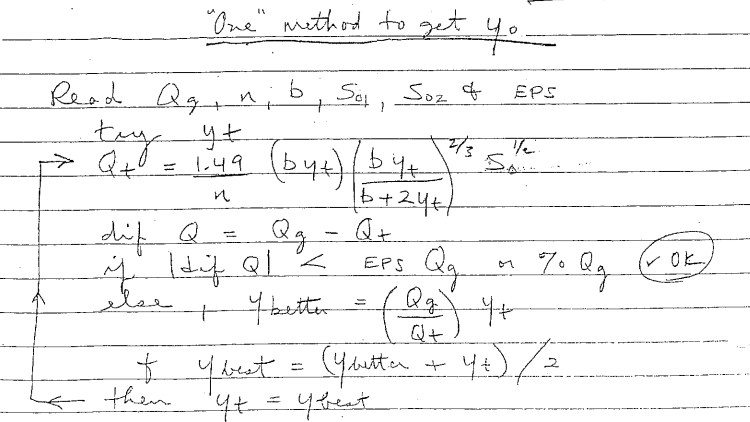 "One" method to get yo
Read Qg, n, b, So1, So2 & EPS
try yt
Qt = 1.49/n (b yt) (b yt / b + 2yt)^2/3 So^1/2
dif Q = Qg - Qt
if |dif Q| < EPS Qg or % Qg ✓ OK
else, ybetter = (Qg/Qt) yt
& ybest = (ybetter + yt)/2
then yt = ybest